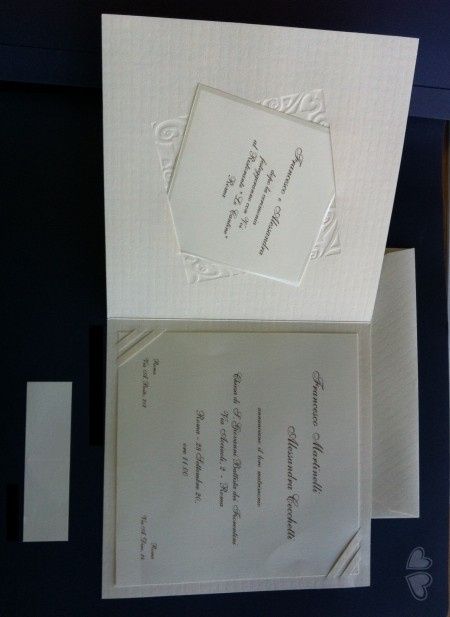 Francesco e Alessandra
dopo la cerimonia
festeggeranno con Voi
al Ristorante "Lo
Roma
Francesco Martinelli
Alessandra Cecchelli
annunciano il loro matrimonio
Chiesa di S. Giovanni Battista dei Fiorentini
Via Acciaioli, 2 - Roma
Roma - 25 Settembre 20..
ore 11.00
Roma
Via
Roma
Via